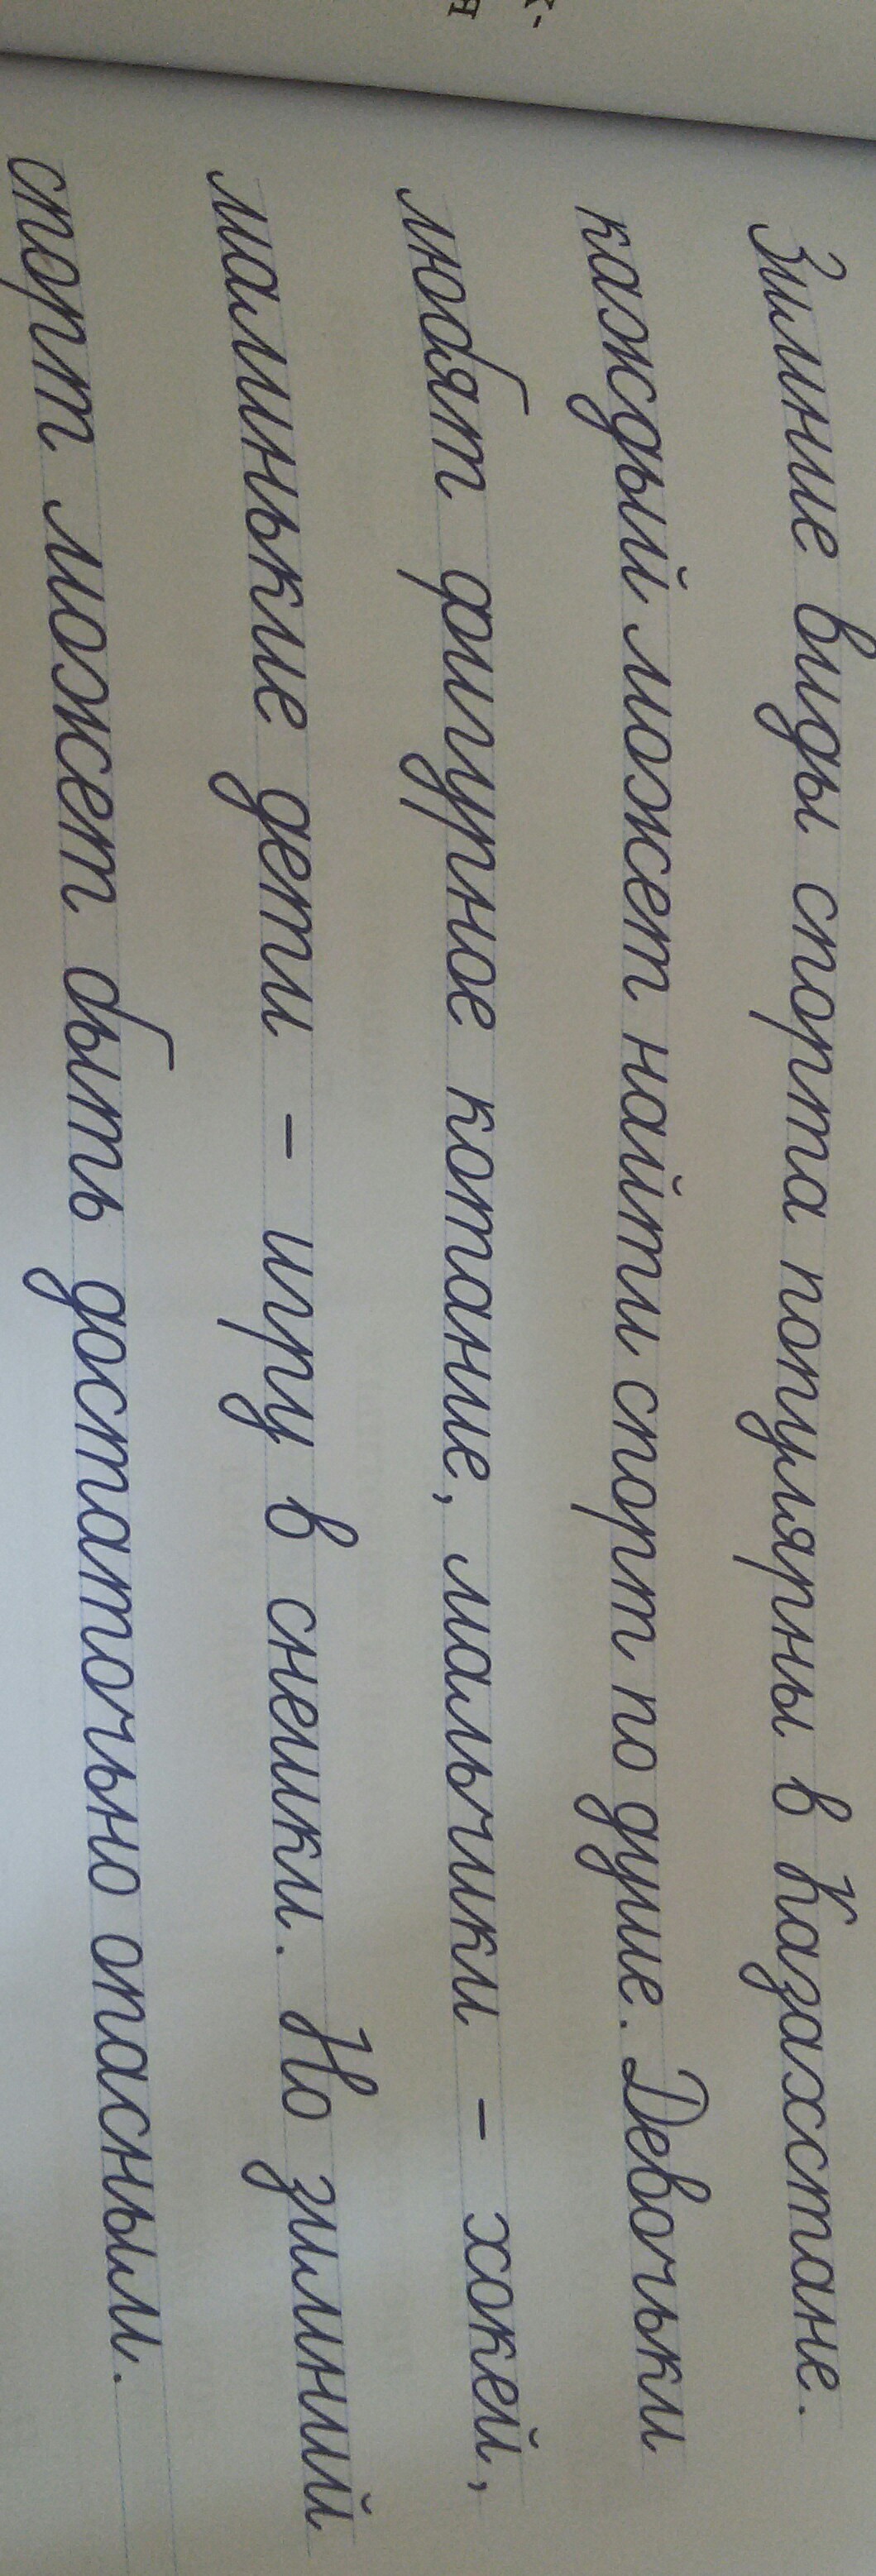 Зимние виды спорта популярны в Казахстане.
каждый может найти спорт по душе. Девочьки
любят фигурное котание, мальчики - хокей,
малинькие дети - игру в снешки. Но зимний
спорт может быть достаточьно опасным.